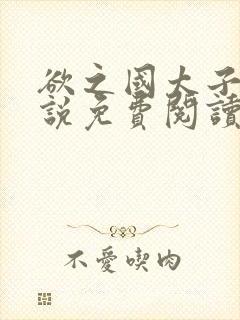 欲之國太子
說免費閱讀
不愛喫肉